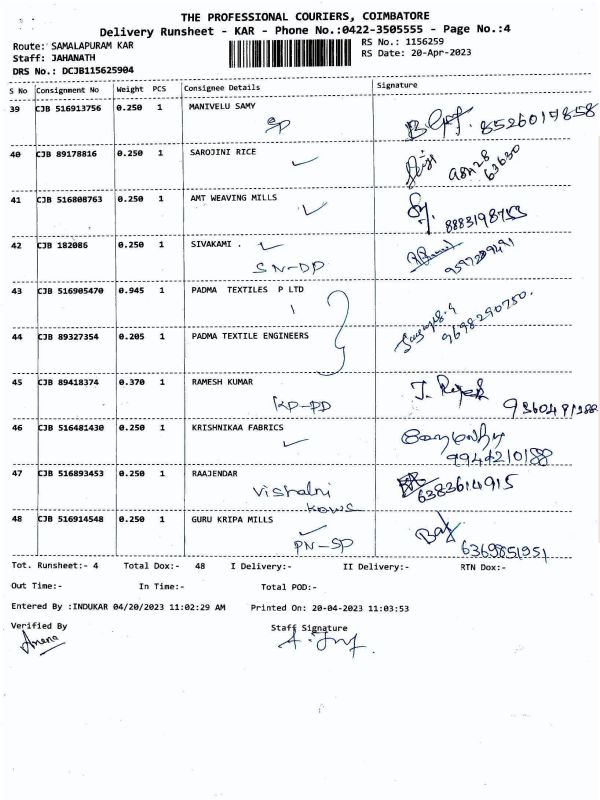 THE PROFESSIONAL COURIERS, COIMBATORE
Delivery Runsheet - KAR - Phone No.:0422-3505555 - Page No.:4
Route: SAMALAPURAM KAR
RS No.: 1156259
Staff: JAHANATH
RS Date: 20-Apr-2023
DRS No.: DCJB115625904
S No Consignment No Weight PCS Consignee Details Signature
39 CJB 516913756 0.250 1 MANIVELU SAMY
SP 8526017858
40 CJB 89178816 0.250 1 SAROJINI RICE
41 CJB 516808763 0.250 1 AMT WEAVING MILLS
8883198753
42 CJB 182086 0.250 1 SIVAKAMI .
SN-DP
43 CJB 516905470 0.945 1 PADMA TEXTILES P LTD
9698290750.
44 CJB 89327354 0.205 1 PADMA TEXTILE ENGINEERS
45 CJB 89418374 0.370 1 RAMESH KUMAR
KP-PD
46 CJB 516481430 0.250 1 KRISHNIKAA FABRICS
9944210188
47 CJB 516893453 0.250 1 RAAJENDAR
Vishalni 6383614915
48 CJB 516914548 0.250 1 GURU KRIPA MILLS
PN-SP 6369851951
Tot. Runsheet:- 4 Total Dox:- 48 I Delivery:- II Delivery:- RTN Dox:-
Out Time:- In Time:- Total POD:-
Entered By :INDUKAR 04/20/2023 11:02:29 AM Printed On: 20-04-2023 11:03:53
Verified By Staff Signature